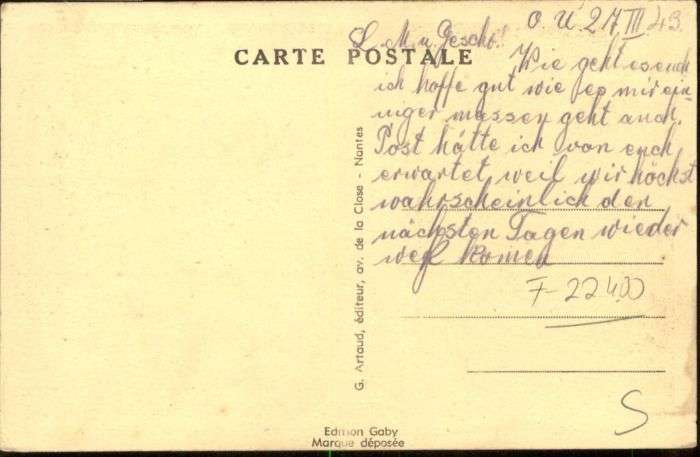 O. U 27 III 43.
L. M. u. Gesch!
CARTE POSTALE
Wie geht es euch
ich hoffe gut wie es mir ein
niger massen geht auch.
Post hätte ich von euch
erwartet, weil wir höchst
wahrscheinlich den
nächsten Tagen wieder
weg komen
F-22400
S
G. Artaud, éditeur, av. de la Close - Nantes
Edition Gaby
Marque déposée